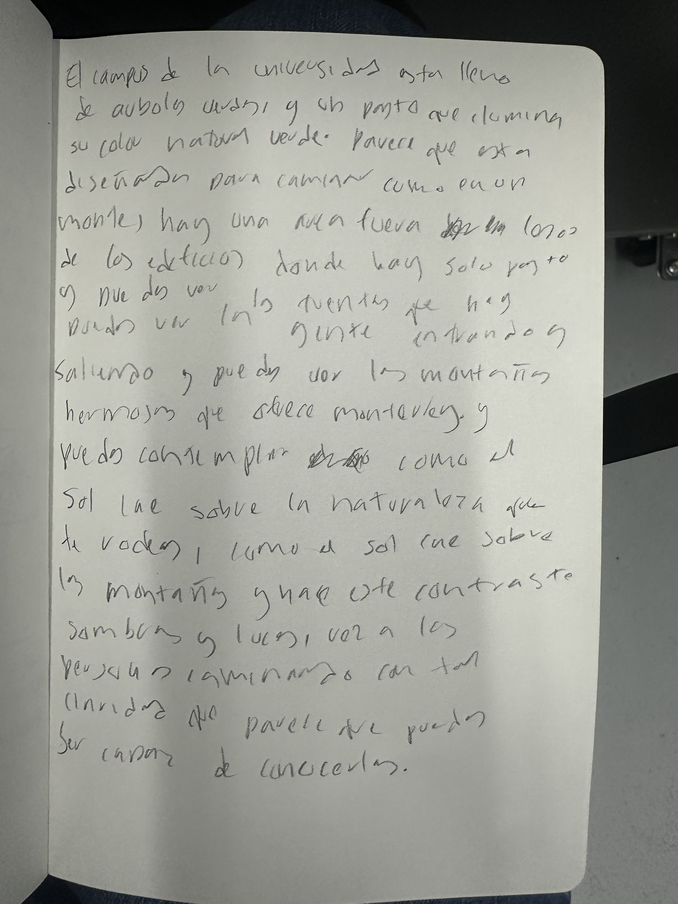 El campus de la universidad esta lleno
de arboles verdes, y un pasto que ilumina
su color natural verde. Parece que esta
diseñado para caminar como en un
monte, hay una area fuera
de los edificios donde hay solo pasto
y puedes ver
puedes ver las fuentes que hay
gente entrando y
saliendo y puedes ver las montañas
hermosas que ofrece monterrey. y
puedes contemplar como el
sol cae sobre la naturaleza que
te rodea, como el sol cae sobre
las montañas y hace este contraste
sombras y luces, vez a las
personas caminando con tal
claridad que parece que puedes
ser capaz de conocerlas.